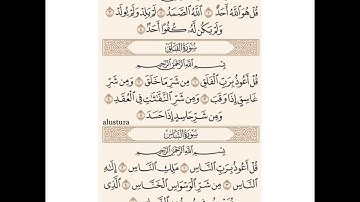 قُلْ هُوَ ٱللَّهُ أَحَدٌ ١ ٱللَّهُ ٱلصَّمَدُ ٢ لَمْ يَلِدْ وَلَمْ يُولَدْ ٣
وَلَمْ يَكُن لَّهُۥ كُفُوًا أَحَدٌۢ ٤
سُورَةُ الفَلَقِ
بِسْمِ ٱللَّهِ ٱلرَّحْمَٰنِ ٱلرَّحِيمِ
قُلْ أَعُوذُ بِرَبِّ ٱلْفَلَقِ ١ مِن شَرِّ مَا خَلَقَ ٢ وَمِن شَرِّ
غَاسِقٍ إِذَا وَقَبَ ٣ وَمِن شَرِّ ٱلنَّفَّٰثَٰتِ فِى ٱلْعُقَدِ ٤
وَمِن شَرِّ حَاسِدٍ إِذَا حَسَدَ ٥
alustura
سُورَةُ النَّاسِ
بِسْمِ ٱللَّهِ ٱلرَّحْمَٰنِ ٱلرَّحِيمِ
قُلْ أَعُوذُ بِرَبِّ ٱلنَّاسِ ١ مَلِكِ ٱلنَّاسِ ٢ إِلَٰهِ
ٱلنَّاسِ ٣ مِن شَرِّ ٱلْوَسْوَاسِ ٱلْخَنَّاسِ ٤ ٱلَّذِى